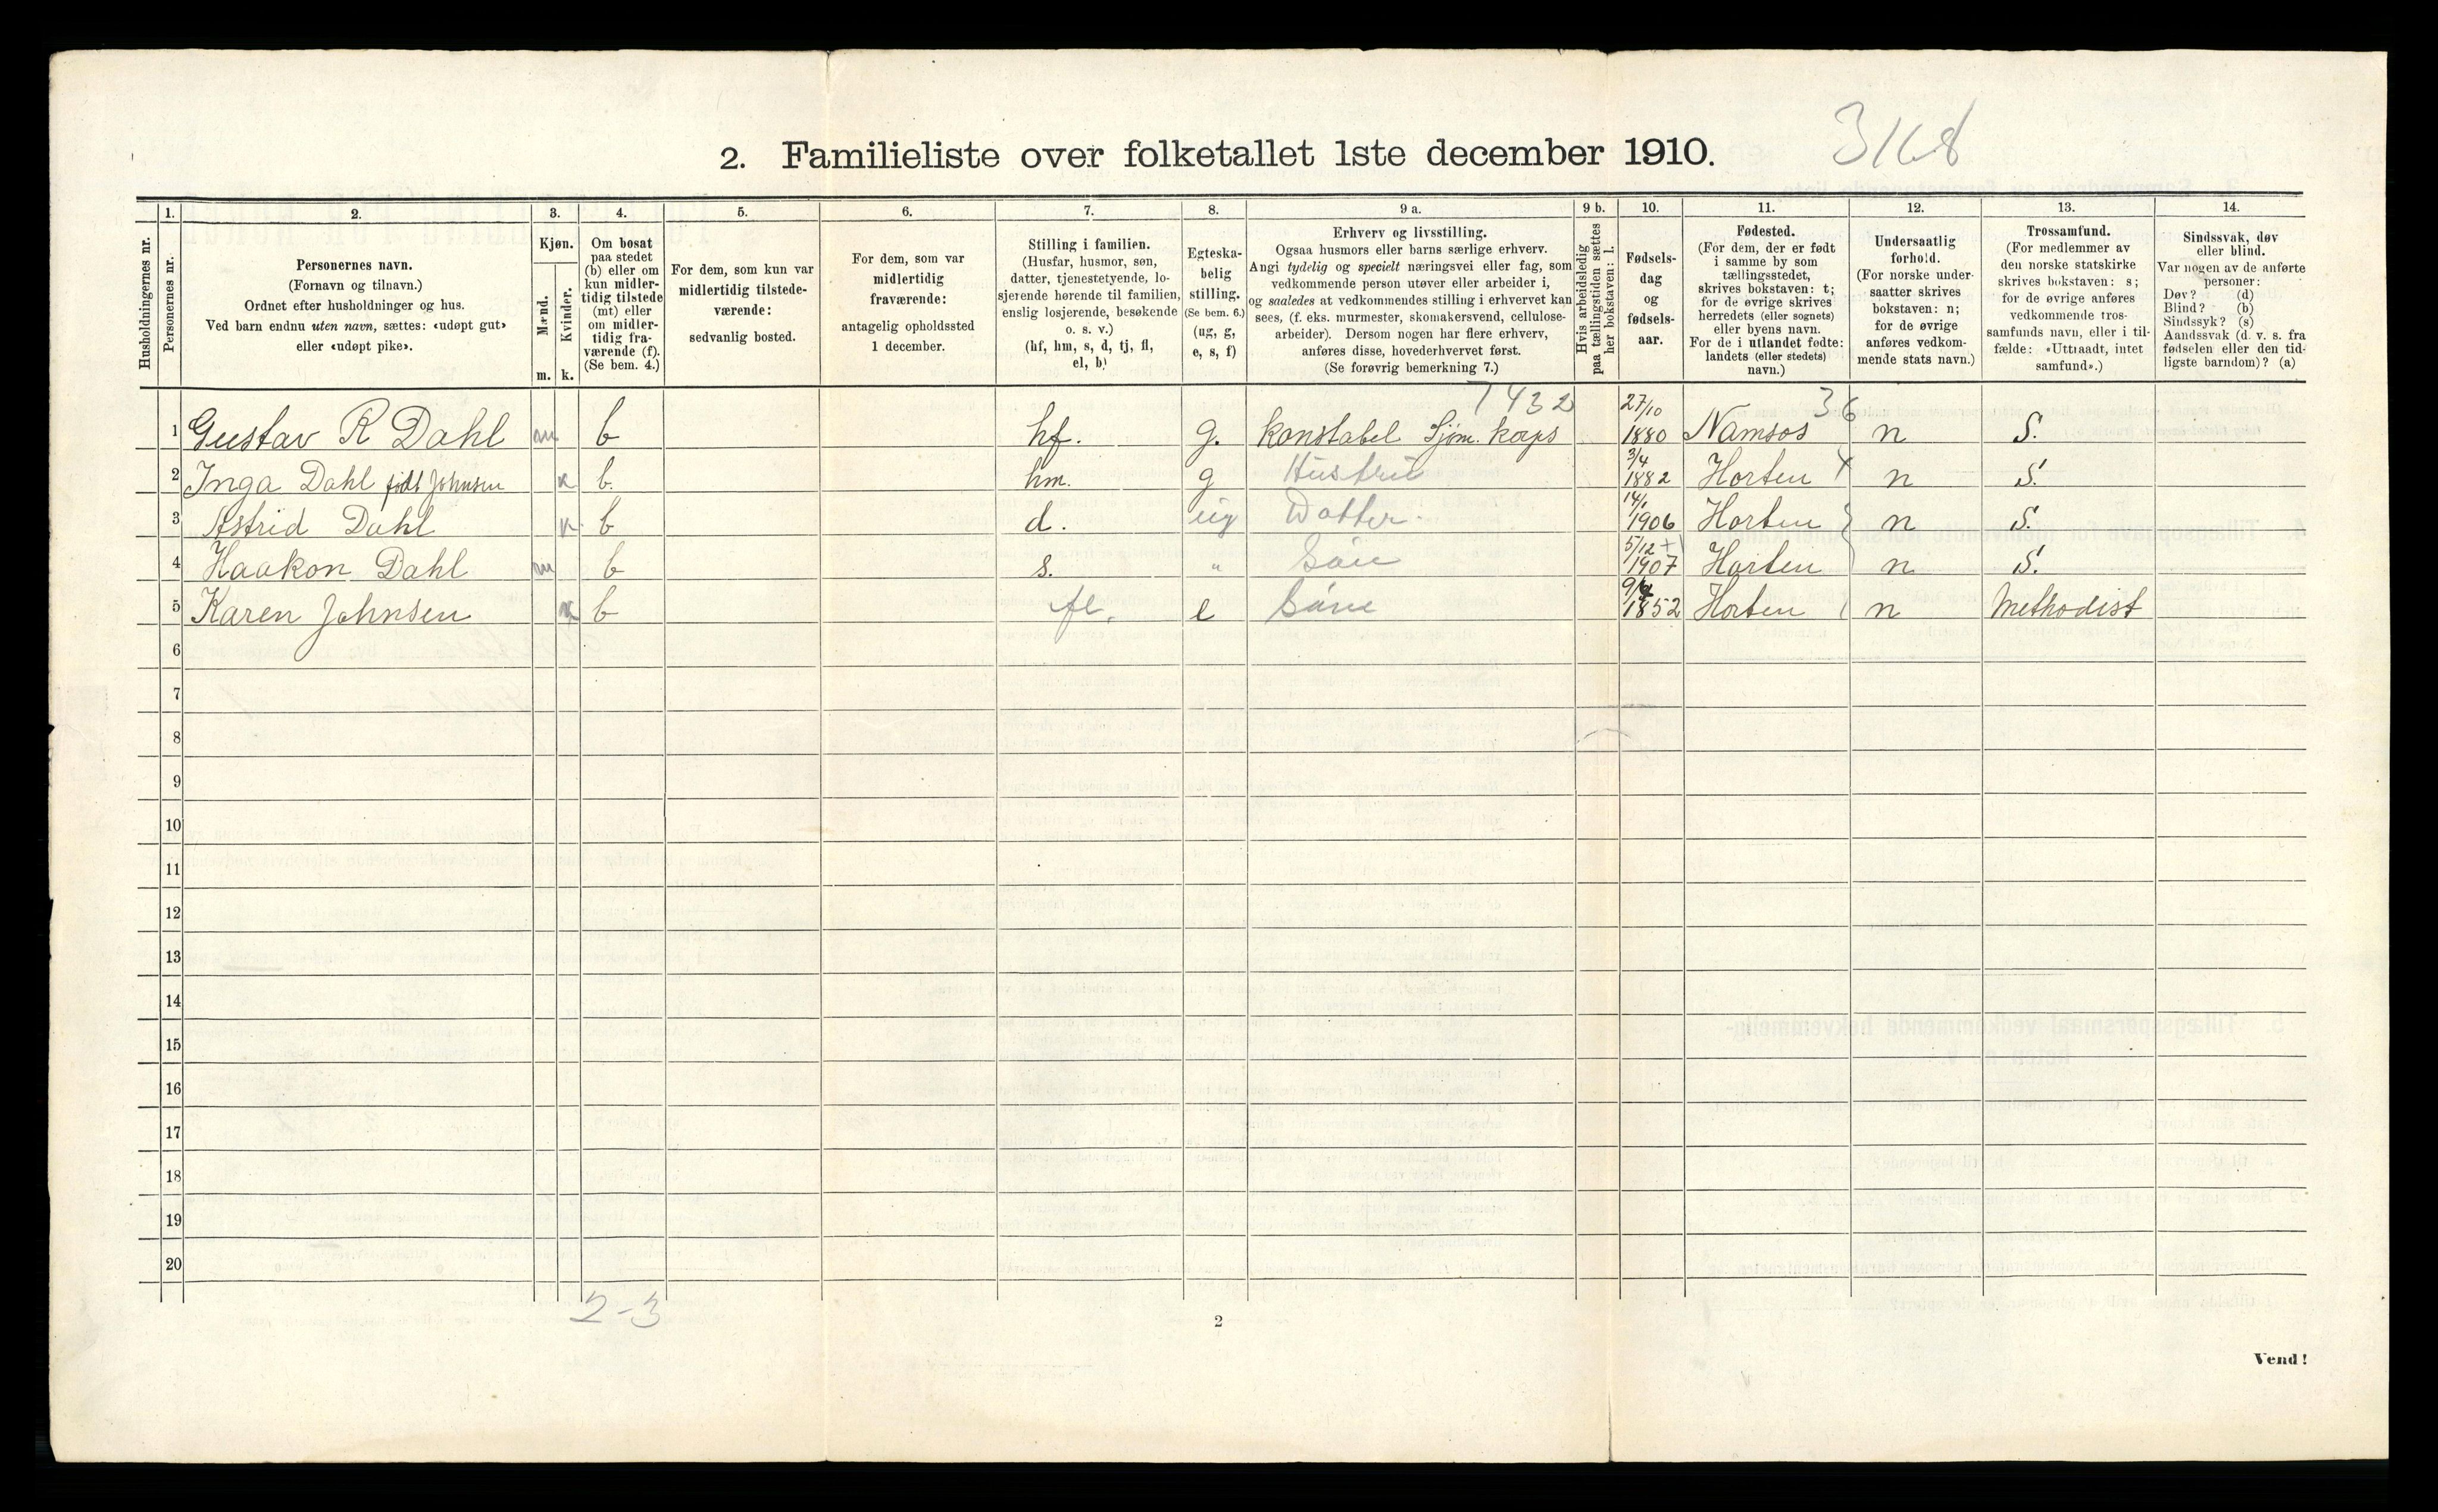 2. Familieliste over folketallet 1ste december 1910.
3168
Husholdningernes nr.
1.
Personernes nr.
2.
Personernes navn.
(Fornavn og tilnavn.)
Ordnet efter husholdninger og hus.
Ved barn endnu uten navn, sættes: «udøpt gut»
eller «udøpt pike».
3.
Kjøn.
Mænd.
m.
Kvinder.
k.
4.
Om bosat
paa stedet
(b) eller om
kun midler-
tidig tilstede
(mt) eller
om midler-
tidig fra-
værende (f).
(Se bem. 4.)
5.
For dem, som kun var
midlertidig tilstede-
værende:
sedvanlig bosted.
6.
For dem, som var
midlertidig
fraværende:
antagelig opholdssted
1 december.
7.
Stilling i familien.
(Husfar, husmor, søn,
datter, tjenestetyende, lo-
sjerende hørende til familien,
enslig losjerende, besøkende
o. s. v.)
(hf, hm, s, d, tj, fl,
el, b)
8.
Egteska-
belig
stilling.
(Se bem. 6.)
(ug, g,
e, s, f)
9 a.
Erhverv og livsstilling.
Ogsaa husmors eller barns særlige erhverv.
Angi tydelig og specielt næringsvei eller fag, som
vedkommende person utøver eller arbeider i,
og saaledes at vedkommendes stilling i erhvervet kan
sees, (f. eks. murmester, skomakersvend, cellulose-
arbeider). Dersom nogen har flere erhverv,
anføres disse, hovederhvervet først.
(Se forøvrig bemerkning 7.)
9 b.
Hvis arbeidsledig
paa tællingstiden sættes
her bokstaven: l.
10.
Fødsels-
dag
og
fødsels-
aar.
11.
Fødested.
(For dem, der er født
i samme by som
tællingsstedet,
skrives bokstaven: t;
for de øvrige skrives
herredets (eller sognets)
eller byens navn.
For de i utlandet fødte:
landets (eller stedets)
navn.)
12.
Undersaatlig
forhold.
(For norske under-
saatter skrives
bokstaven: n;
for de øvrige
anføres vedkom-
mende stats navn.)
13.
Trossamfund.
(For medlemmer av
den norske statskirke
skrives bokstaven: s;
for de øvrige anføres
vedkommende tros-
samfunds navn, eller i til-
fælde: «Uttraadt, intet
samfund».)
14.
Sindssvak, døv
eller blind.
Var nogen av de anførte
personer:
Døv? (d)
Blind? (b)
Sindssyk? (s)
Aandssvak (d. v. s. fra
fødselen eller den tid-
ligste barndom)? (a)
7432 27/10 36
1 Gustav R Dahl m b hf. g. konstabel Sjøm. korps 1880 Namsos n S.
3/4
2 Inga Dahl født Johnsen k b. hm. g Hustru 1882 Horten 4 n S.
14/1
3 Astrid Dahl k b d. ug Datter. 1906 Horten n S.
5/12 +1
4 Haakon Dahl m b s. " Sön 1907 Horten n S.
5 Karen Johnsen k b fl. e 1852 Horten n Methodist
6
7
8
9
10
11
12
13
14
15
16
17
18
19
20
2-3
2
Vend!